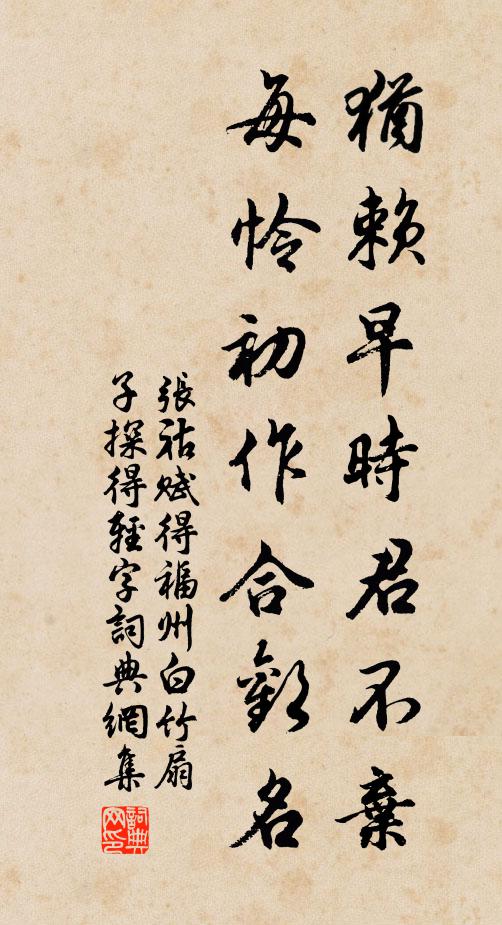 猶賴早時君不棄
每憐初作合歡名
張祜賦得福州白竹扇
子探得輕字詞典網集
詞典网印